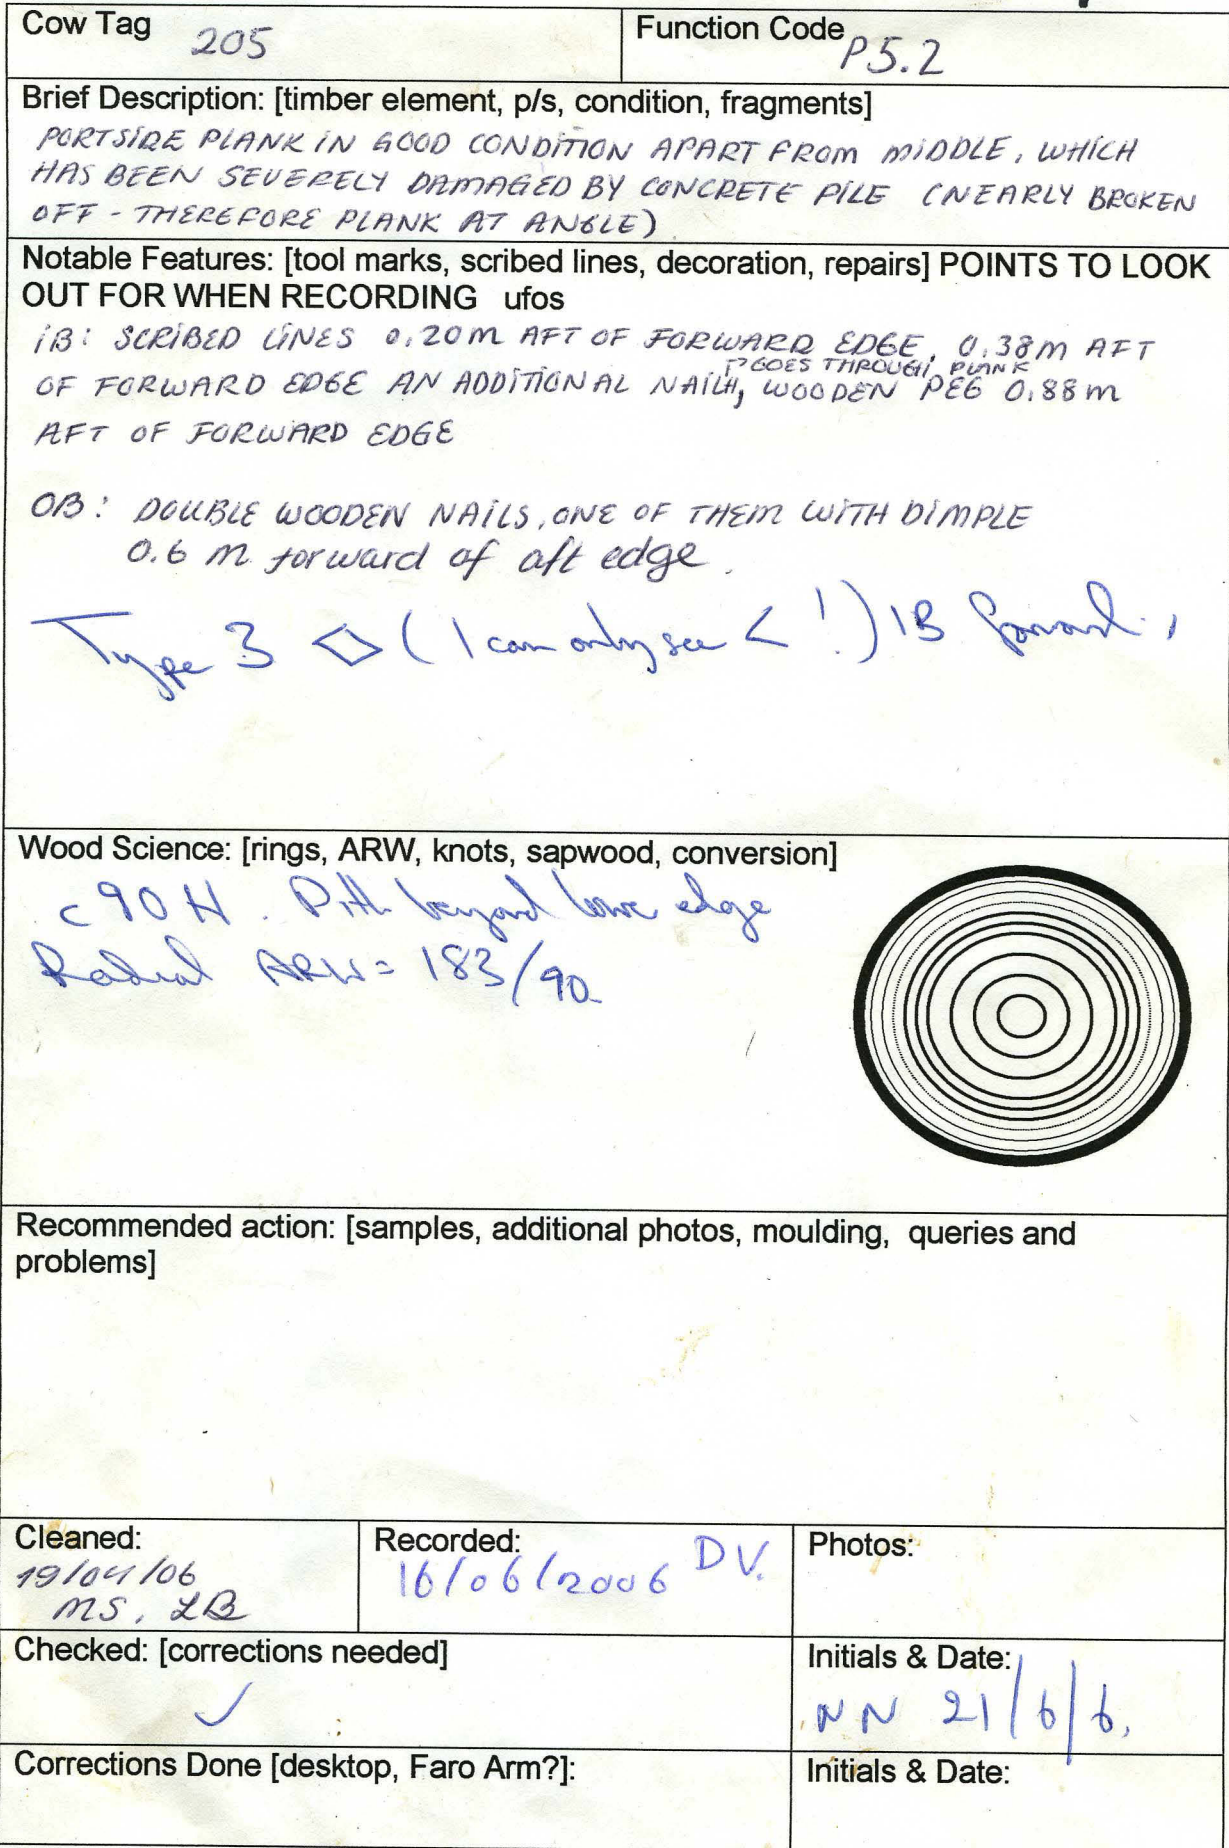 Cow Tag 205 Function Code P5.2
Brief Description: [timber element, p/s, condition, fragments]
PORTSIDE PLANK IN GOOD CONDITION APART FROM MIDDLE, WHICH
HAS BEEN SEVERELY DAMAGED BY CONCRETE PILE (NEARLY BROKEN
OFF - THEREFORE PLANK AT ANGLE)
Notable Features: [tool marks, scribed lines, decoration, repairs] POINTS TO LOOK
OUT FOR WHEN RECORDING ufos
IB: SCRIBED LINES 0.20m AFT OF FORWARD EDGE, 0.38m AFT
GOES THROUGH PLANK
OF FORWARD EDGE AN ADDITIONAL NAIL, WOODEN PEG 0.88m
AFT OF FORWARD EDGE
OB: DOUBLE WOODEN NAILS, ONE OF THEM WITH DIMPLE
0.6 m forward of aft edge.
Type 3 ◇ (I can only see < !) IB forward.
Wood Science: [rings, ARW, knots, sapwood, conversion]
c90 H. Pith beyond lower edge
Radial ARW = 183/90
Recommended action: [samples, additional photos, moulding, queries and
problems]
Cleaned: Recorded: Photos:
19/04/06 16/06/2006 D.V.
MS, LB
Checked: [corrections needed] Initials & Date:
✓ NN 21/6/6.
Corrections Done [desktop, Faro Arm?]: Initials & Date: